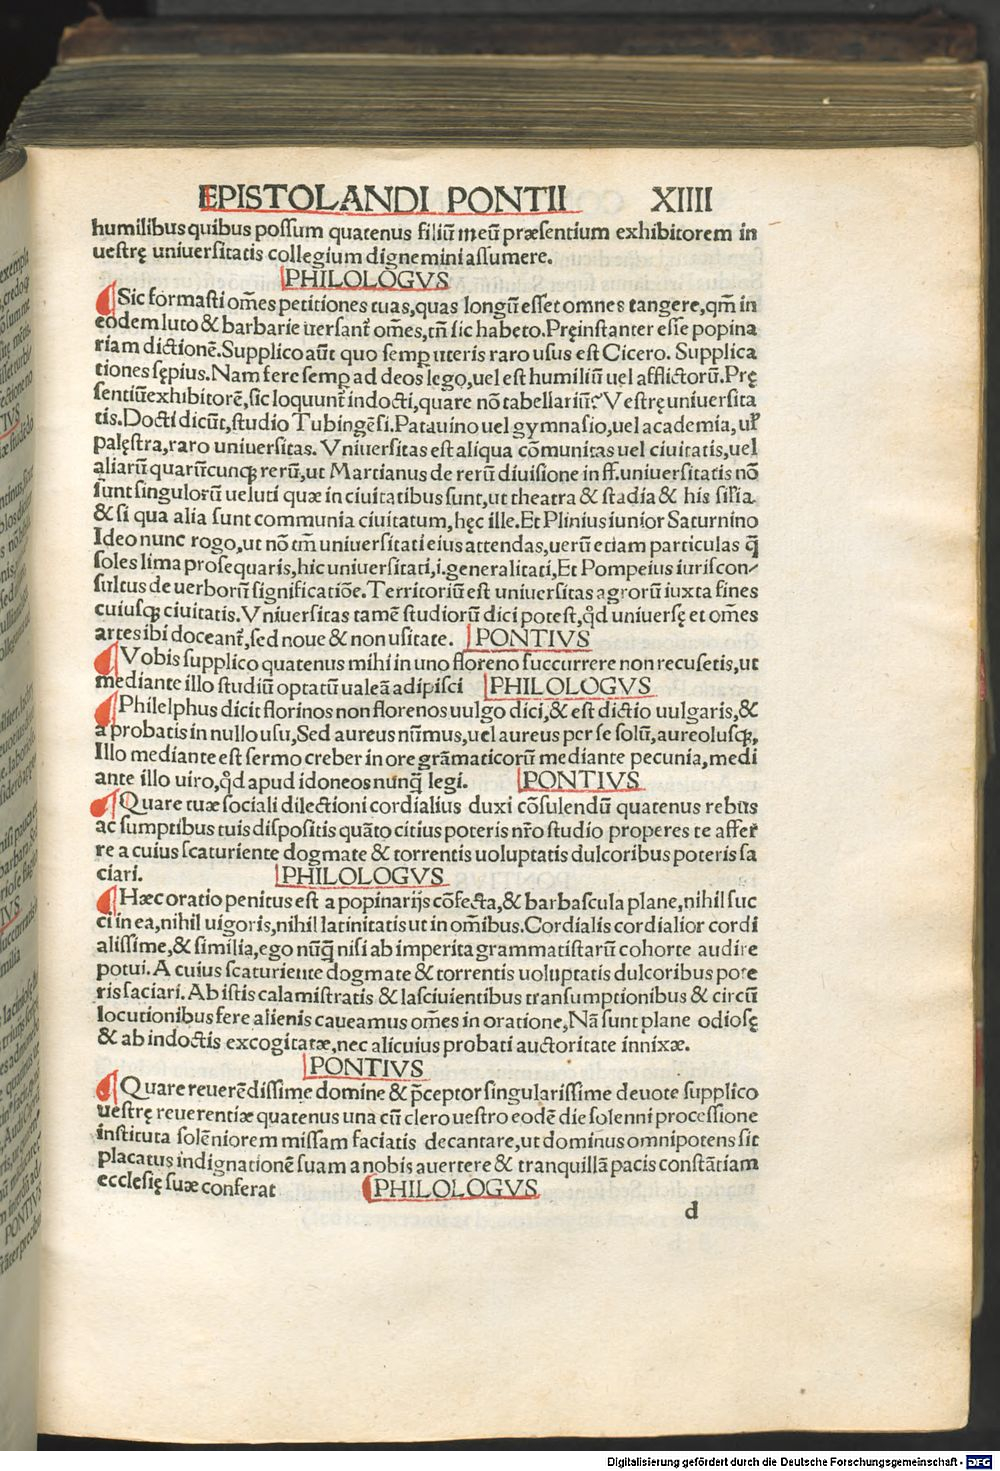 EPISTOLANDI PONTII XIIII
humilibus quibus possum quatenus filiũ meũ præsentium exhibitorem in
uestrę uniuersitatis collegium dignemini assumere.
PHILOLOGVS
Sic formasti om̃es petitiones tuas, quas longũ esset omnes tangere, qm̃ in
eodem luto & barbarie uersant̃ om̃es, tm̃ sic habeto. Pręinstanter esse popina
riam dictionẽ. Supplico aũt quo semp̱ uteris raro usus est Cicero. Supplica
tiones sępius. Nam fere semp̱ ad deos lego, uel est humiliũ uel afflictorũ. Prę
sentiũ exhibitorẽ, sic loquunt̃ indocti, quare nõ tabellariũ? Vestrę uniuersita
tis. Docti dicũt, studio Tubingẽsi. Patauino uel gymnasio, uel academia, ul̃
palęstra, raro uniuersitas. Vniuersitas est aliqua cõmunitas uel ciuitatis, uel
aliarũ quarũcunqꝫ rerũ, ut Martianus de rerũ diuisione in ff. uniuersitatis nõ
sunt singulorũ ueluti quæ in ciuitatibus sunt, ut theatra & stadia & his sil̃ia
& si qua alia sunt communia ciuitatum, hęc ille. Et Plinius iunior Saturnino
Ideo nunc rogo, ut nõ tm̃ uniuersitati eius attendas, uerũ etiam particulas q̃
soles lima prosequaris, hic uniuersitati, i. generalitati, Et Pompeius iuriscon⸗
sultus de uerborũ significatiõe. Territoriũ est uniuersitas agrorũ iuxta fines
cuiusqꝫ ciuitatis. Vniuersitas tamẽ studiorũ dici potest, qđ uniuersę et om̃es
artes ibi doceant̃, sed noue & non usitate. PONTIVS
Vobis supplico quatenus mihi in uno floreno succurrere non recusetis, ut
mediante illo studiũ optatũ ualeã adipisci PHILOLOGVS
Philelphus dicit florinos non florenos uulgo dici, & est dictio uulgaris, &
a probatis in nullo usu, Sed aureus nũmus, uel aureus per se solũ, aureolusqꝫ,
Illo mediante est sermo creber in ore grãmaticorũ mediante pecunia, medi
ante illo uiro, qđ apud idoneos nunq̃ legi. PONTIVS
Quare tuæ sociali dilectioni cordialius duxi cõsulendũ quatenus rebus
ac sumptibus tuis dispositis quãto citius poteris nr̃o studio properes te affer̃
re a cuius scaturiente dogmate & torrentis uoluptatis dulcoribus poteris sa
ciari. PHILOLOGVS
Hæc oratio penitus est a popinarijs cõfecta, & barbascula plane, nihil suc
ci in ea, nihil uigoris, nihil latinitatis ut in om̃ibus. Cordialis cordialior cordi
alissime, & similia, ego nũq̃ nisi ab imperita grammatistarũ cohorte audire
potui. A cuius scaturiente dogmate & torrentis uoluptatis dulcoribus pote
ris saciari. Ab istis calamistratis & lasciuientibus transumptionibus & circũ
locutionibus fere alienis caueamus om̃es in oratione, Nã sunt plane odiosę
& ab indoctis excogitatæ, nec alicuius probati auctoritate innixæ.
PONTIVS
Quare reuerẽdissime domine & p̃ceptor singularissime deuote supplico
uestrę reuerentiæ quatenus una cũ clero uestro eodẽ die solenni processione
instituta solẽniorem missam faciatis decantare, ut dominus omnipotens sit
placatus indignationẽ suam a nobis auertere & tranquillã pacis constãtiam
ecclesię suæ conferat PHILOLOGVS
d
Digitalisierung gefördert durch die Deutsche Forschungsgemeinschaft - DFG